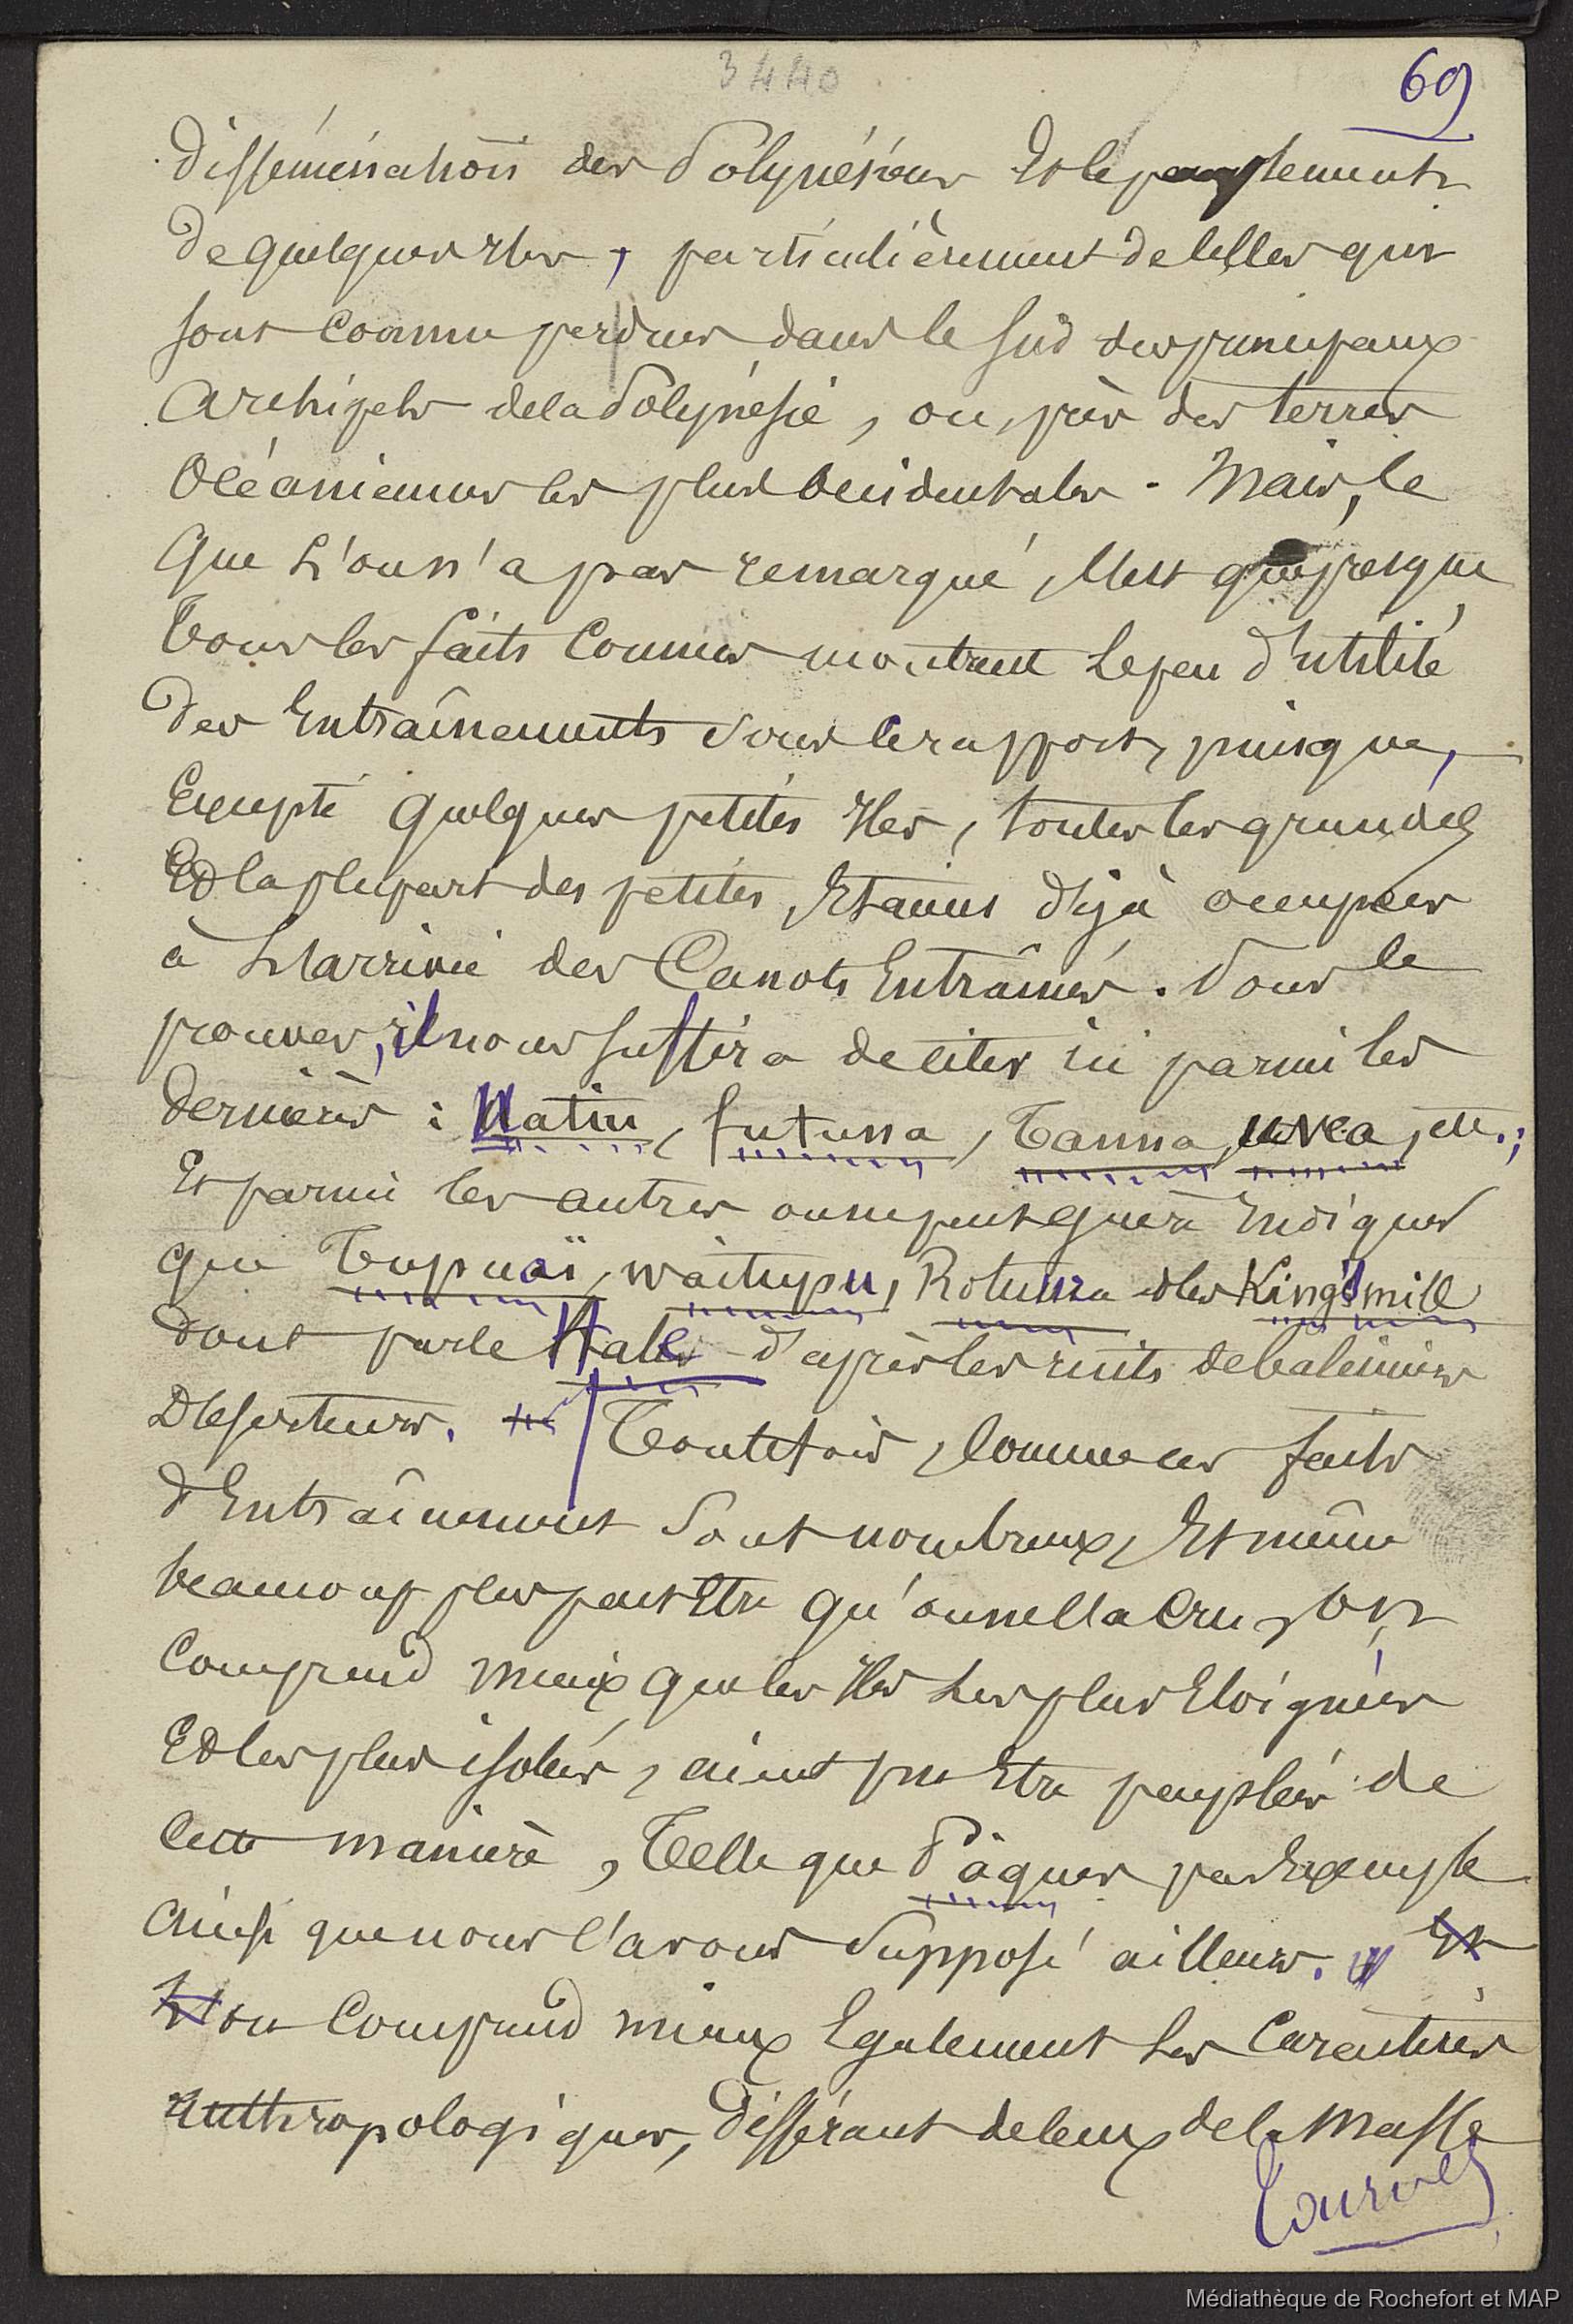 3440
69
dissémination des Polynésiens et le peuplement
de quelques îles, particulièrement de celles qui
sont comme perdues dans le sud des principaux
archipels de la Polynésie, ou, près des terres
Océaniennes les plus occidentales. Mais, ce
que l'on n'a pas remarqué, c'est que presque
tous les faits connus montrent le peu d'utilité
des Entraînements sous ce rapport, puisque,
Excepté quelques petites îles, toutes les grandes
Et la plupart des petites, Etaient déjà occupées
à l'arrivée des Canots Entraînés. Pour le
prouver, il nous suffira de citer ici parmi les
dernières : Vatiu, futuna, Tanna, uvea, etc.;
Et parmi les autres on ne peut guère Indiquer
que Tupuaï, waitupu, Rotuma et les King'smill
dont parle Hale d'après les récits de baleiniers
Déserteurs. Toutefois, comme ces faits
d'Entraînement sont nombreux, Et même
beaucoup plus peut Etre qu'on ne l'a cru, on
comprend mieux que les îles les plus Eloignées
Et les plus isolées, aient pu Etre peuplées de
cette manière, Telle que Pâques par Exemple
ainsi que nous l'avons supposé ailleurs. Et
l'on comprend mieux Egalement les caractères
anthropologiques, différant de ceux de la masse
Tournez
Médiathèque de Rochefort et MAP